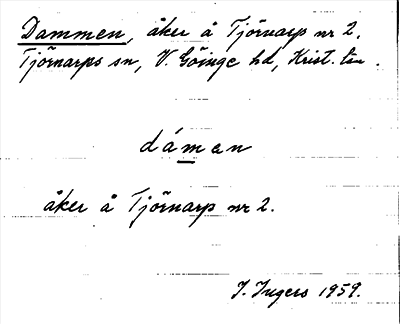 Dammen, åker å Tjörnarp nr 2.
Tjörnarps sn, V. Göinge hd, Krist. län.
dámen
åker å Tjörnarp nr 2.
I. Ingers 1959.